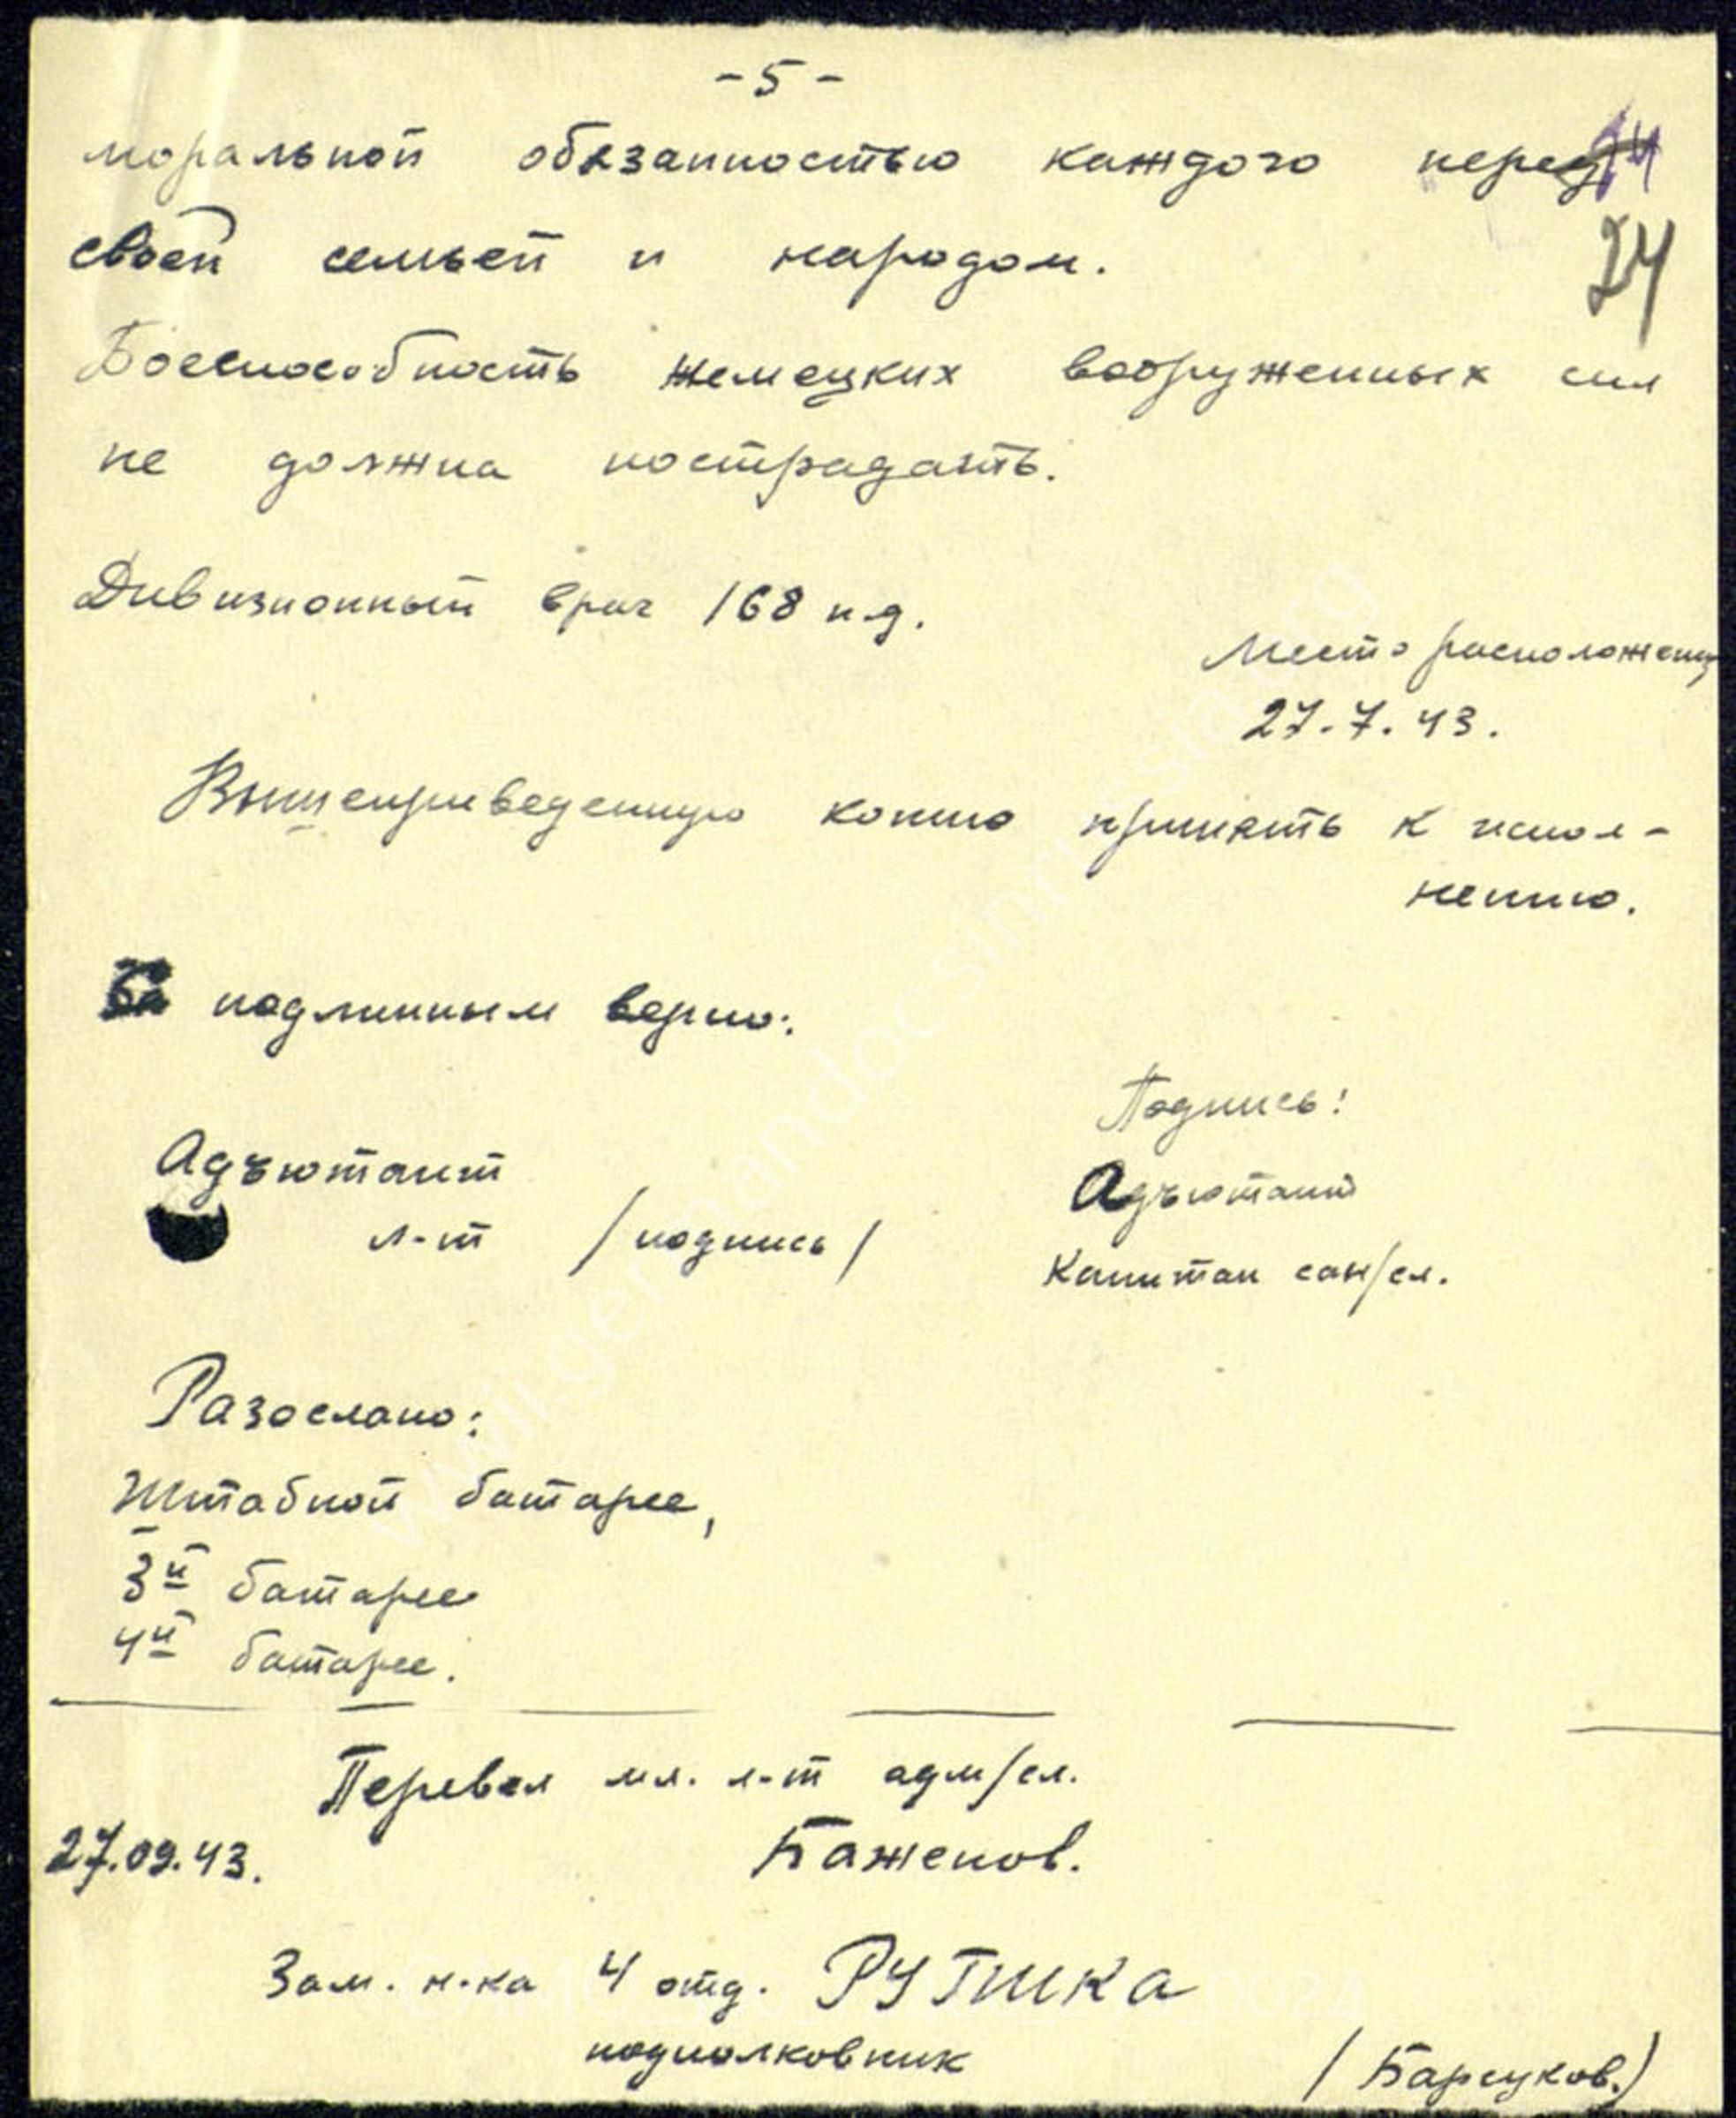 - 5 -
моральной обязанностью каждого перед
24
своей семьей и народом.
Боеспособность немецких вооруженных сил
не должна пострадать.
Дивизионный врач 168 п.д.
Место расположения
27.7.43.
Вышеприведенную копию принять к испол-
нению.
подлинным верно:
Подпись:
Адъютант
Адъютант
л-т /подпись/
Капитан сан/сл.
Разослано:
Штабной батарее,
3й батарее
4й батарее.
Перевел мл. л-т адм/сл.
27.09.43.
Баженов.
Зам. н-ка 4 отд. РУТШКА
подполковник
/Барсуков./